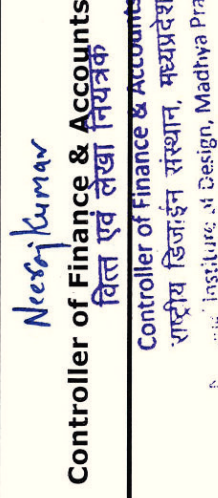 Neeraj Kumar
Controller of Finance & Accounts
वित्त एवं लेखा नियंत्रक
Controller of Finance & Accounts
राष्ट्रीय डिजाईन संस्थान, मध्यप्रदेश
Institute of Design, Madhya Pra